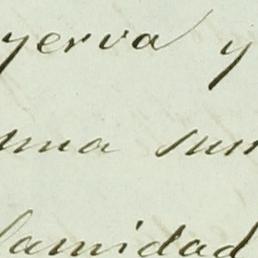 yerva y
una sum
lamidad